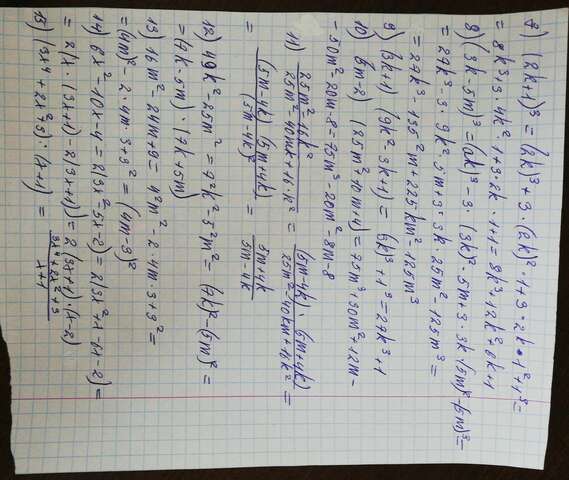 8) (2k+1)³ = (2k)³ + 3 · (2k)² · 1 + 3 · 2k · 1² + 1³ =
= 8k³ + 3 · 4k² · 1 + 3 · 2k · 1 + 1 = 8k³ + 12k² + 6k + 1
8) (3k - 5m)³ = (3k)³ - 3 · (3k)² · 5m + 3 · 3k · (5m)² - (5m)³ =
= 27k³ - 3 · 9k² · 5m + 3 · 3k · 25m² - 125m³ =
= 27k³ - 135k²m + 225km² - 125m³
9) (3k+1) (9k² - 3k + 1) = (3k)³ + 1³ = 27k³ + 1
10) (5m-2) (25m² + 10m + 4) = 75m³ + 30m² + 12m -
- 50m² - 20m - 8 = 75m³ - 20m² - 8m - 8
11) (25m² - 16k²)/(25m² - 40mk + 16k²) = ((5m-4k) · (5m+4k))/(25m² - 40km + 16k²) =
= ((5m-4k) (5m+4k))/((5m-4k)²) = (5m+4k)/(5m-4k)
12) 49k² - 25m² = 7²k² - 5²m² = (7k)² - (5m)² =
= (7k - 5m) · (7k + 5m)
13) 16m² - 24m + 9 = 4²m² - 2 · 4m · 3 + 3² =
= (4m)² - 2 · 4m · 3 + 3² = (4m - 3)²
14) 6x² - 10x - 4 = 2(3x² - 5x - 2) = 2(3x² + x - 6x - 2) =
= 2(x · (3x+1) - 2(3x+1)) = 2(3x+1) · (x-2)
15) (3x⁴ + 2x² + 3) : (x+1) = (3x⁴ + 2x² + 3)/(x+1)